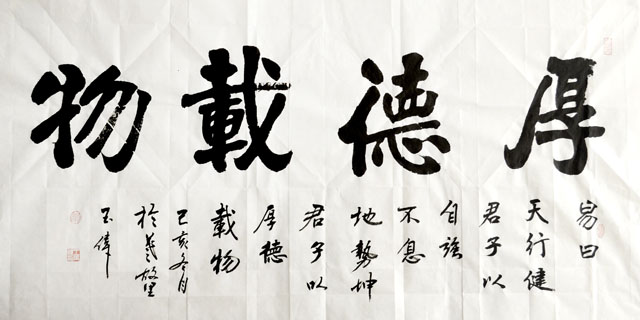 厚德載物
易曰
天行健
君子以
自強
不息
地勢坤
君子以
厚德
載物
己亥冬月
於羲故里
玉偉